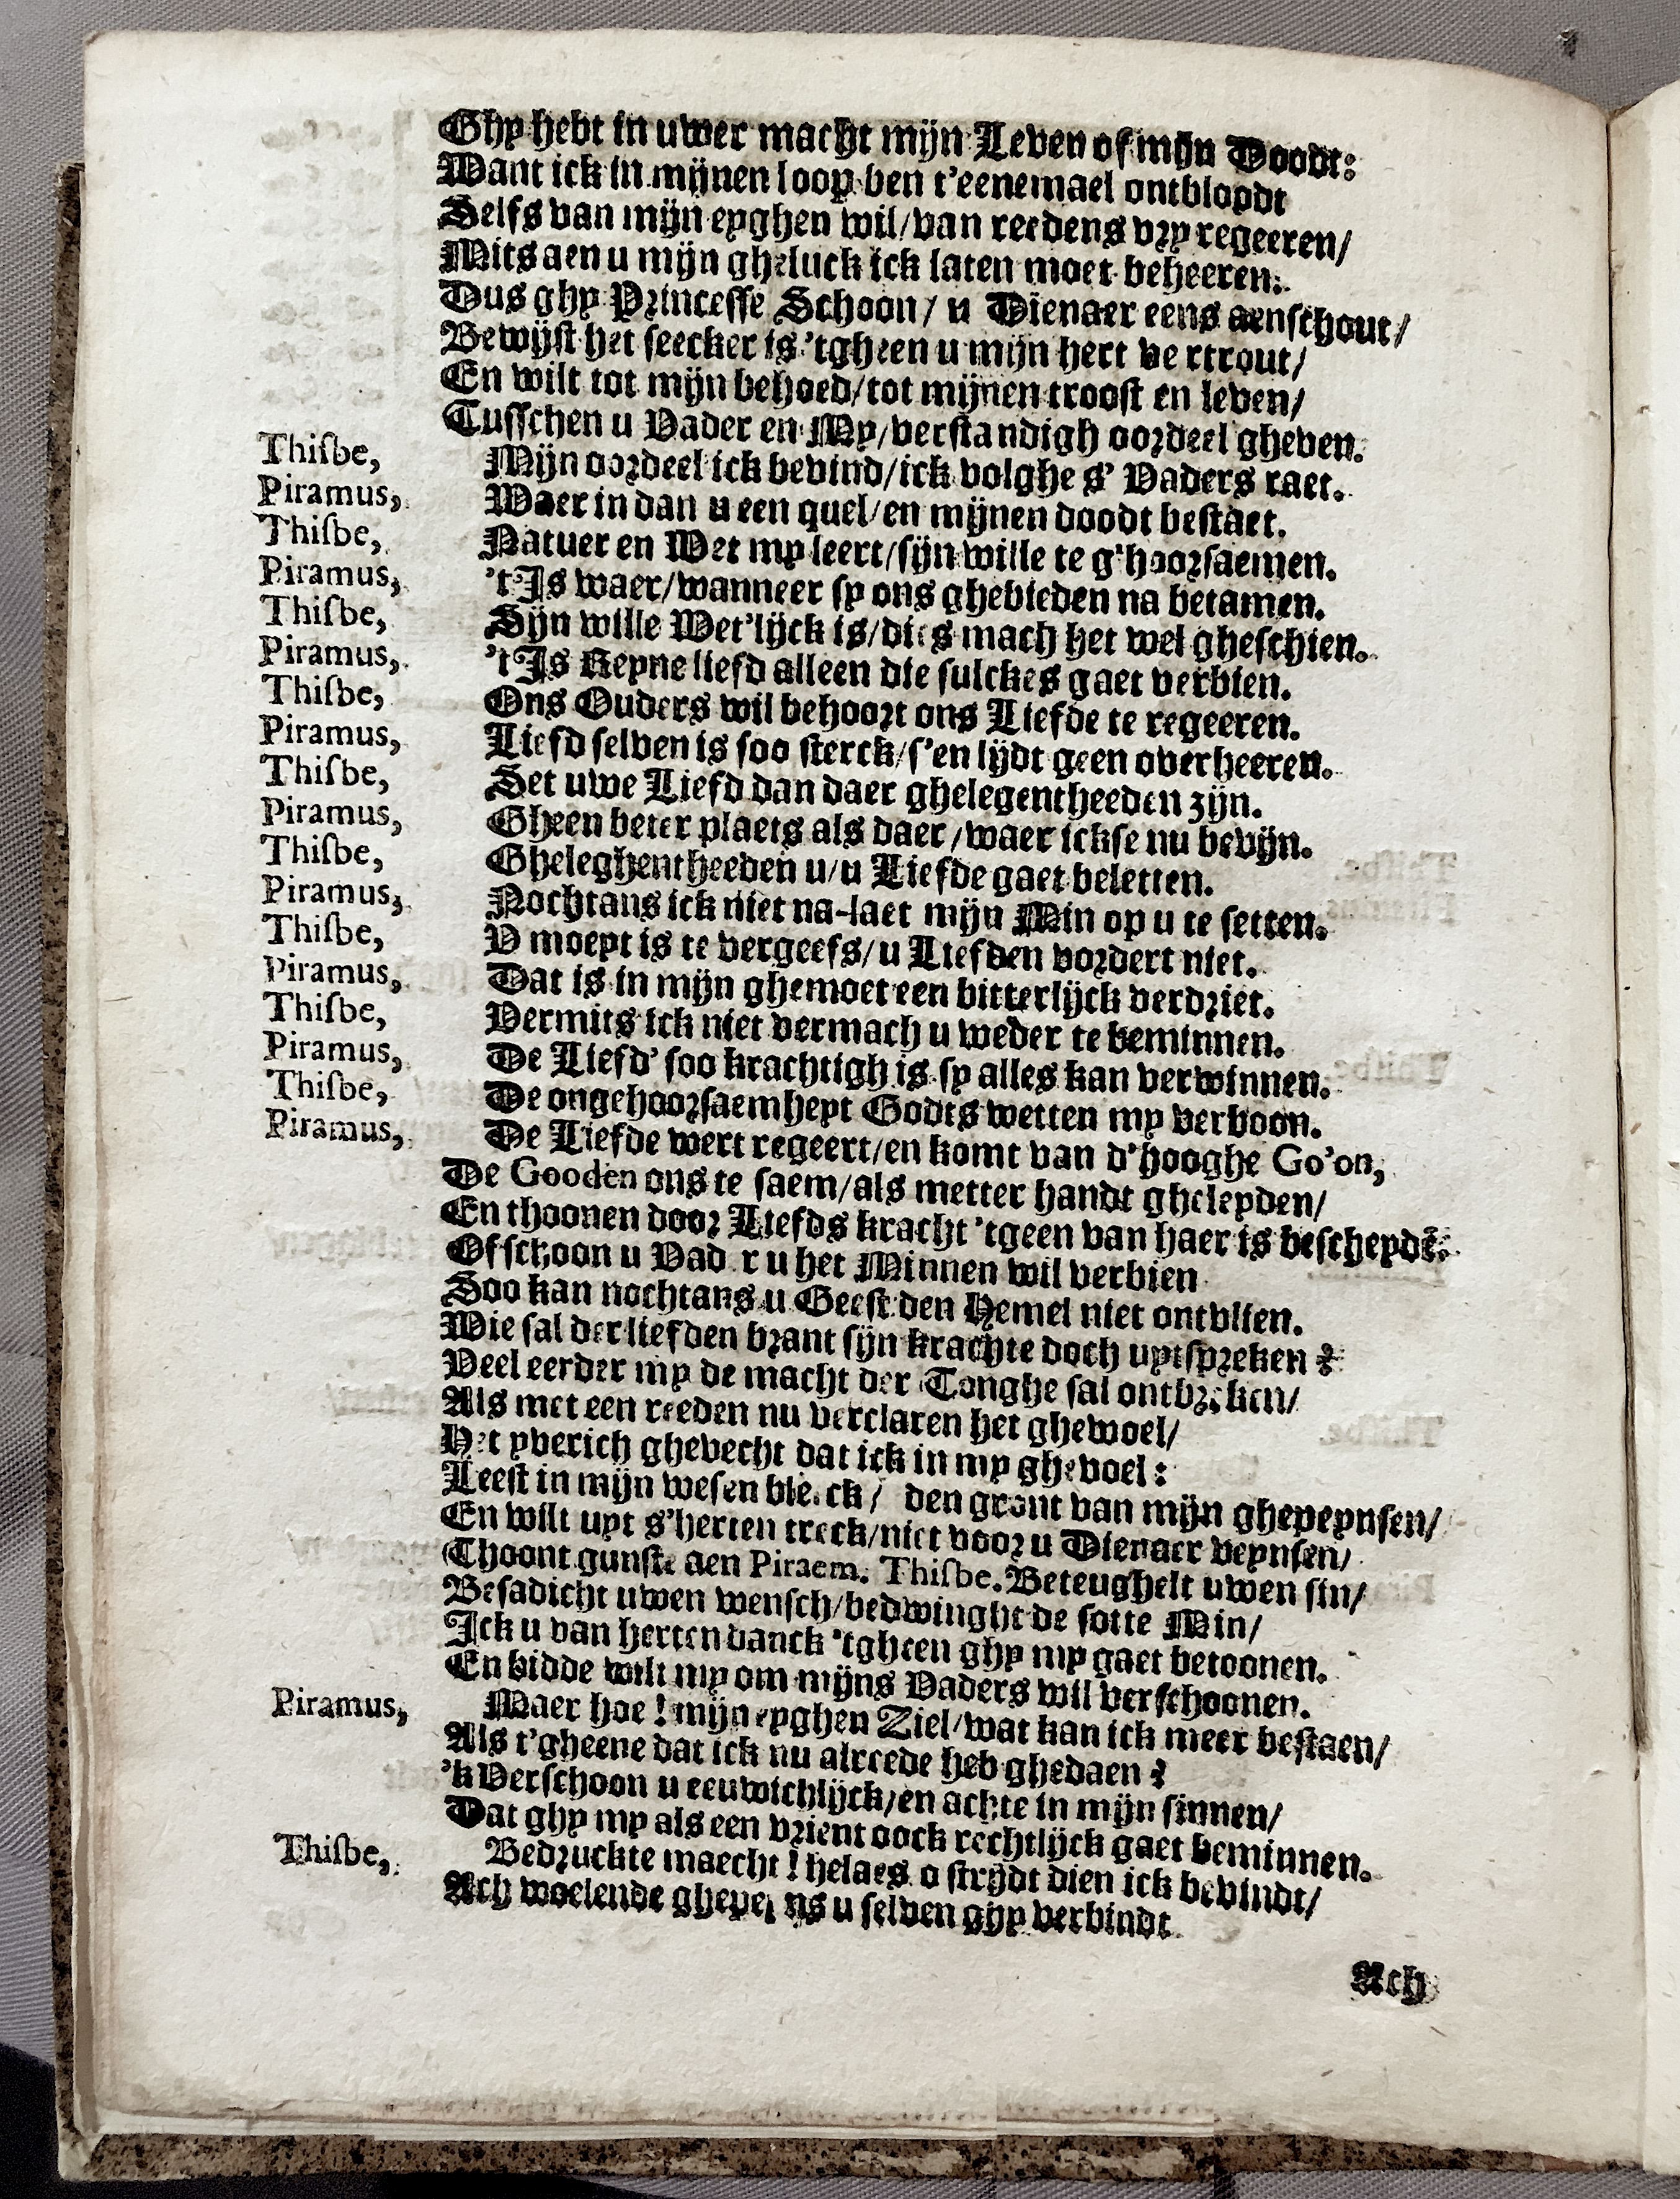 Ghy hebt in uwer macht mijn Leven of mijn Doodt:
Want ick in mijnen loop ben t'eenemael ontbloodt
Selfs van mijn eyghen wil/van reedens vry regeeren/
Mits aen u mijn gheluck ick laten moet beheeren:
Dus ghy Princesse Schoon/ u Dienaer eens aenschout/
Bewijst het seecker is 'tgheen u mijn hert vertrout/
En wilt tot mijn behoed/tot mijnen troost en leven/
Tusschen u Vader en My/verstandigh oordeel gheven.
Thisbe, Mijn oordeel ick bevind/ick volghe s' Vaders raet.
Piramus, Waer in dan u een quel/en mijnen doodt bestaet.
Thisbe, Natuer en Wet my leert/sijn wille te g'hoorsaemen.
Piramus, 't Is waer/wanneer sy ons ghebieden na betamen.
Thisbe, Sijn wille Wet'lijck is/dies mach het wel gheschien.
Piramus, 't Is Reyne liefd alleen die sulckes gaet verbien.
Thisbe, Ons Ouders wil behoort ons Liefde te regeeren.
Piramus, Liefd selven is soo sterck/s'en lijdt geen overheeren.
Thisbe, Set uwe Liefd dan daer ghelegentheeden zijn.
Piramus, Gheen beter plaets als daer/waer ickse nu bevijn.
Thisbe, Gheleghentheeden u/u Liefde gaet beletten.
Piramus, Nochtans ick niet na-laet mijn Min op u te setten.
Thisbe, V moeyt is te vergeefs/u Liefden vordert niet.
Piramus, Dat is in mijn ghemoet een bitterlijck verdriet.
Thisbe, Vermits ick niet vermach u weder te beminnen.
Piramus, De Liefd' soo krachtigh is sy alles kan verwinnen.
Thisbe, De ongehoorsaemheyt Godts wetten my verboon.
Piramus, De Liefde wert regeert/en komt van d'hooghe Go'on,
De Gooden ons te saem/als metter handt gheleyden/
En thoonen door Liefds kracht 'tgeen van haer is bescheydē.
Of schoon u Vad r u het Minnen wil verbien
Soo kan nochtans u Geest den Hemel niet ontvlien.
Wie sal der liefden brant sijn krachte doch uytspreken?
Veel eerder my de macht der Tonghe sal ontbreken/
Als met een reeden nu verclaren het ghewoel/
Het yverich ghevecht dat ick in my ghevoel:
Leest in mijn wesen bleeck/ den gront van mijn ghepeynsen/
En wilt uyt s'herten treck/niet voor u Dienaer veynsen/
Thoont gunste aen Piraem. Thisbe. Beteughelt uwen sin/
Besadicht uwen wensch/bedwinght de sotte Min/
Ick u van herten danck 'tgheen ghy my gaet betoonen.
En bidde wilt my om mijns Vaders wil verschoonen.
Piramus, Maer hoe! mijn eyghen Ziel/wat kan ick meer bestaen/
Als t'gheene dat ick nu alreede heb ghedaen?
'k Verschoon u eeuwichlijck/en achte in mijn sinnen/
Dat ghy my als een vrient oock rechtlijck gaet beminnen.
Thisbe, Bedruckte maecht! helaes o strijdt dien ick bevindt/
Ach woelende ghepeyns u selven ghy verbindt
Ach